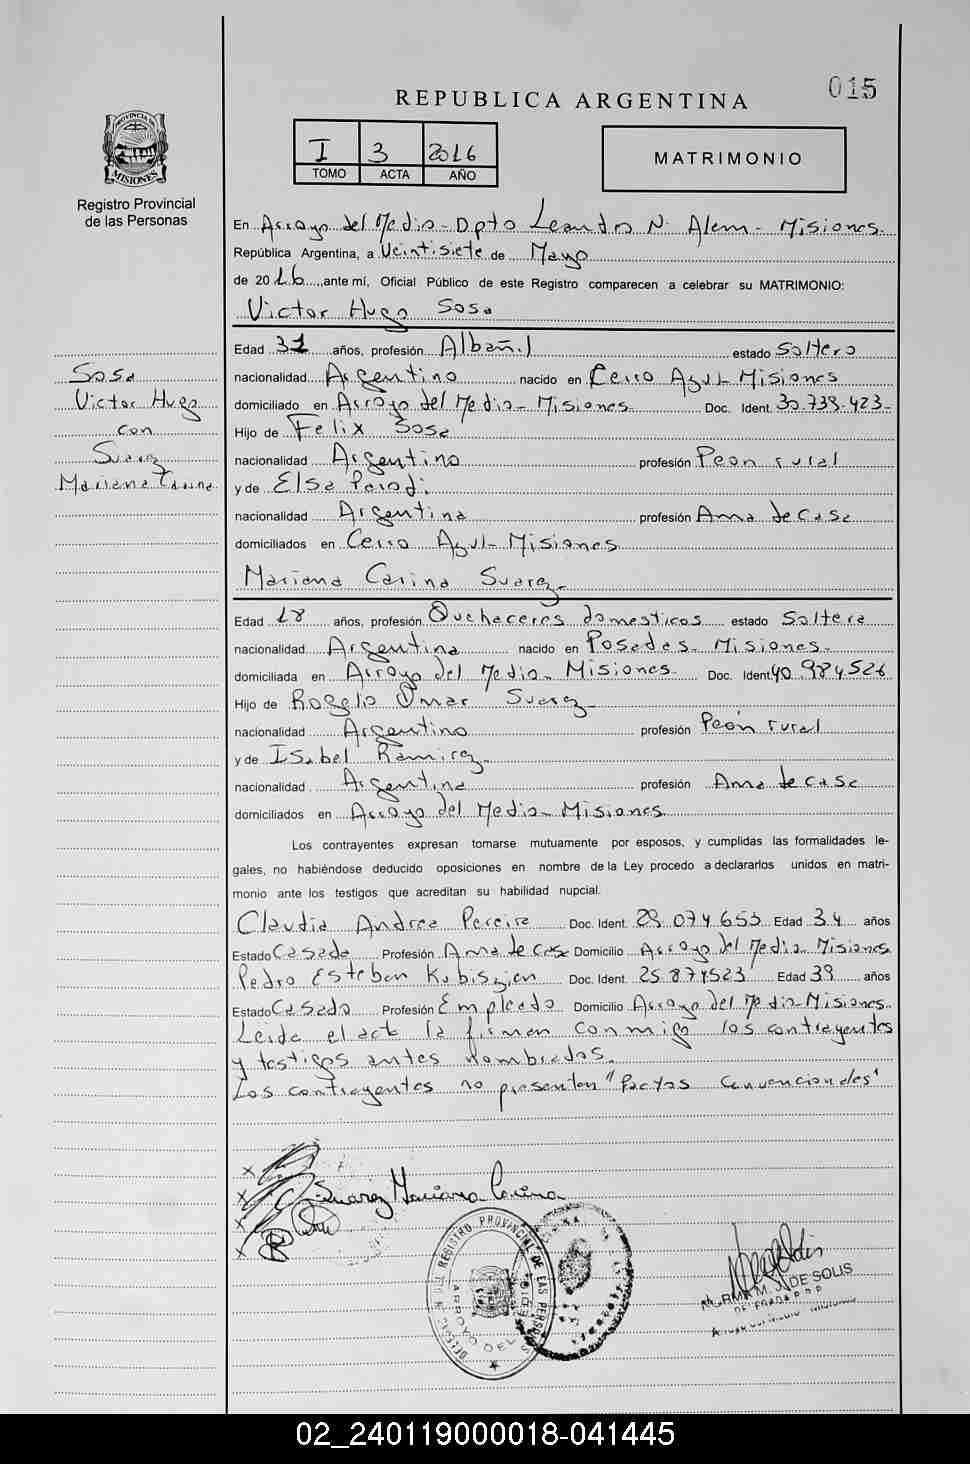 015
REPUBLICA ARGENTINA
I 3 2016
TOMO ACTA AÑO
MATRIMONIO
PROVINCIA DE
MISIONES
Registro Provincial
de las Personas
En Arroyo del Medio - Dpto Leandro N. Alem - Misiones.
República Argentina, a Veintisiete de Mayo
de 2016, ante mí, Oficial Público de este Registro comparecen a celebrar su MATRIMONIO:
Victor Hugo Sosa
Edad 31 años, profesión Albañil estado Soltero
nacionalidad Argentino nacido en Cerro Azul - Misiones
domiciliado en Arroyo del Medio - Misiones. Doc. Ident 30.739.423-
Hijo de Felix Sosa
nacionalidad Argentino profesión Peon rural
y de Elsa Parodi
nacionalidad Argentina profesión Ama de casa
domiciliados en Cerro Azul - Misiones
Sosa
Victor Hugo
con
Suarez
Mariana Carina
Mariana Carina Suarez -
Edad 18 años, profesión Quehaceres domesticos estado Soltera
nacionalidad Argentina nacido en Posadas - Misiones.
domiciliada en Arroyo del Medio - Misiones. Doc. Ident 40.984.526
Hijo de Rogelio Omar Suarez -
nacionalidad Argentino profesión Peón rural
y de Isabel Ramirez -
nacionalidad Argentina profesión Ama de casa
domiciliados en Arroyo del Medio - Misiones
Los contrayentes expresan tomarse mutuamente por esposos, y cumplidas las formalidades le-
gales, no habiéndose deducido oposiciones en nombre de la Ley procedo a declararlos unidos en matri-
monio ante los testigos que acreditan su habilidad nupcial.
Claudia Andrea Pereira Doc. Ident. 29.074.653 Edad 34 años
Estado Casada Profesión Ama de casa Domicilio Arroyo del Medio - Misiones
Pedro Esteban Doc. Ident. 25.871.523 Edad 39 años
Estado Casado Profesión Empleado Domicilio Arroyo del Medio - Misiones
Leida el acta la firman conmigo los contrayentes
y testigos antes nombrados.
Los contrayentes no presentan "Pactos Convencionales"
Suarez Mariana Carina
DELEGACION DEL REGISTRO PROVINCIAL DE LAS PERSONAS
ARROYO DEL MEDIO
NORMA M. J. DE SOLIS
02_240119000018-041445